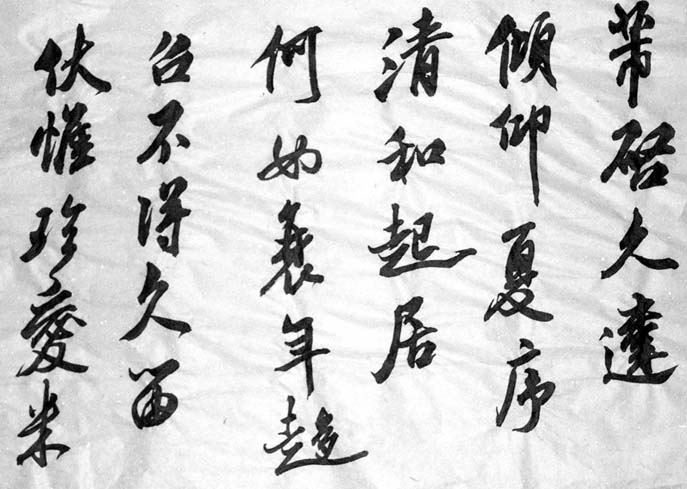 芾啓久違
傾仰夏序
清和起居
何如衰年趍
召不得久留
伏惟珍愛米